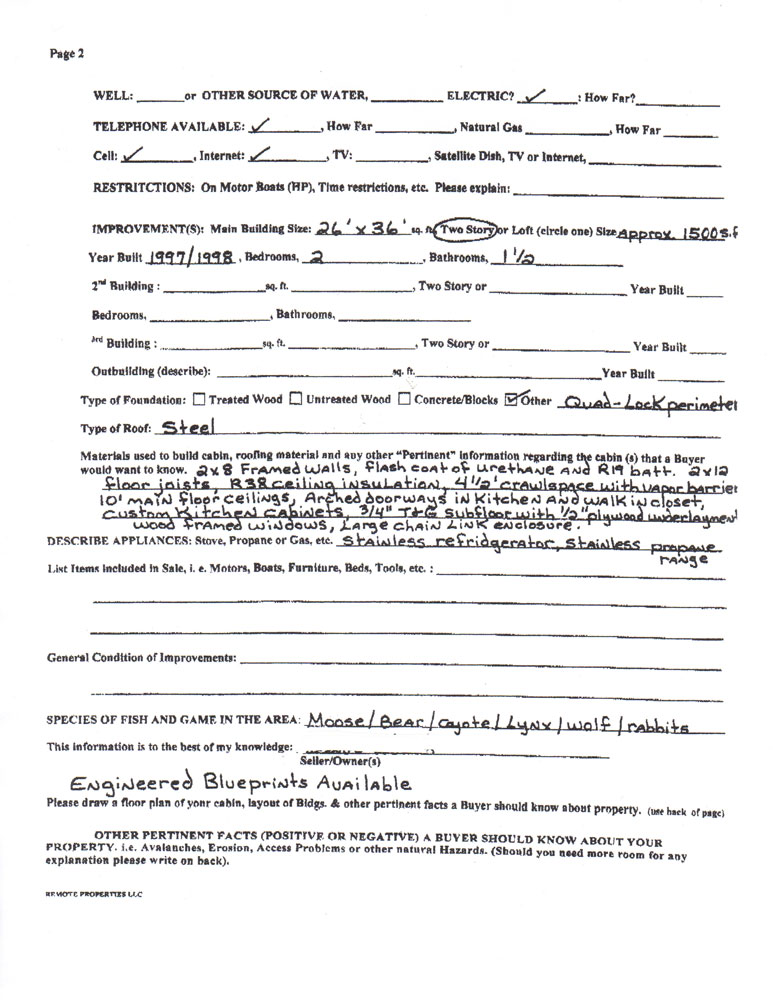 Page 2
WELL: ______ or OTHER SOURCE OF WATER, _________ ELECTRIC? ✓ : How Far? __________
TELEPHONE AVAILABLE: ✓ , How Far __________, Natural Gas __________, How Far _______
Cell: ✓ , Internet: ✓ , TV: _________, Satellite Dish, TV or Internet, ________________
RESTRITCTIONS: On Motor Boats (HP), Time restrictions, etc. Please explain: __________________________
IMPROVEMENT(S): Main Building Size: 26' x 36' sq. ft. Two Story or Loft (circle one) Size Approx 1500 s.f
Year Built 1997/1998, Bedrooms, 2, Bathrooms, 1 1/2
2nd Building : _____________ sq. ft. ________________, Two Story or __________________ Year Built _____
Bedrooms, _______________, Bathrooms, _________________
3rd Building : _____________ sq. ft. ________________, Two Story or __________________ Year Built _____
Outbuilding (describe): _______________________ sq. ft. __________________________ Year Built ________
Type of Foundation: ☐ Treated Wood ☐ Untreated Wood ☐ Concrete/Blocks ☑ Other Quad-Lock perimeter
Type of Roof: Steel
Materials used to build cabin, roofing material and any other "Pertinent" information regarding the cabin (s) that a Buyer
would want to know. 2x8 Framed walls, flash coat of urethane and R19 batt. 2x12
floor joists, R38 ceiling insulation, 4 1/2' crawlspace with vapor barrier
10' main floor ceilings, Arched doorways in Kitchen and walk in closet,
custom Kitchen cabinets, 3/4" T&G subfloor with 1/2" plywood underlayment
wood framed windows, Large chain link enclosure.
DESCRIBE APPLIANCES: Stove, Propane or Gas, etc. Stainless refridgerator, stainless propane
range
List Items included in Sale, i. e. Motors, Boats, Furniture, Beds, Tools, etc. : ______________________
General Condition of Improvements: ______________________________
SPECIES OF FISH AND GAME IN THE AREA: Moose/Bear/coyote/Lynx/wolf/rabbits
This information is to the best of my knowledge:
Seller/Owner(s)
Engineered Blueprints Available
Please draw a floor plan of your cabin, layout of Bldgs. & other pertinent facts a Buyer should know about property. (use back of page)
OTHER PERTINENT FACTS (POSITIVE OR NEGATIVE) A BUYER SHOULD KNOW ABOUT YOUR
PROPERTY. i.e. Avalanches, Erosion, Access Problems or other natural Hazards. (Should you need more room for any
explanation please write on back).
REMOTE PROPERTIES LLC